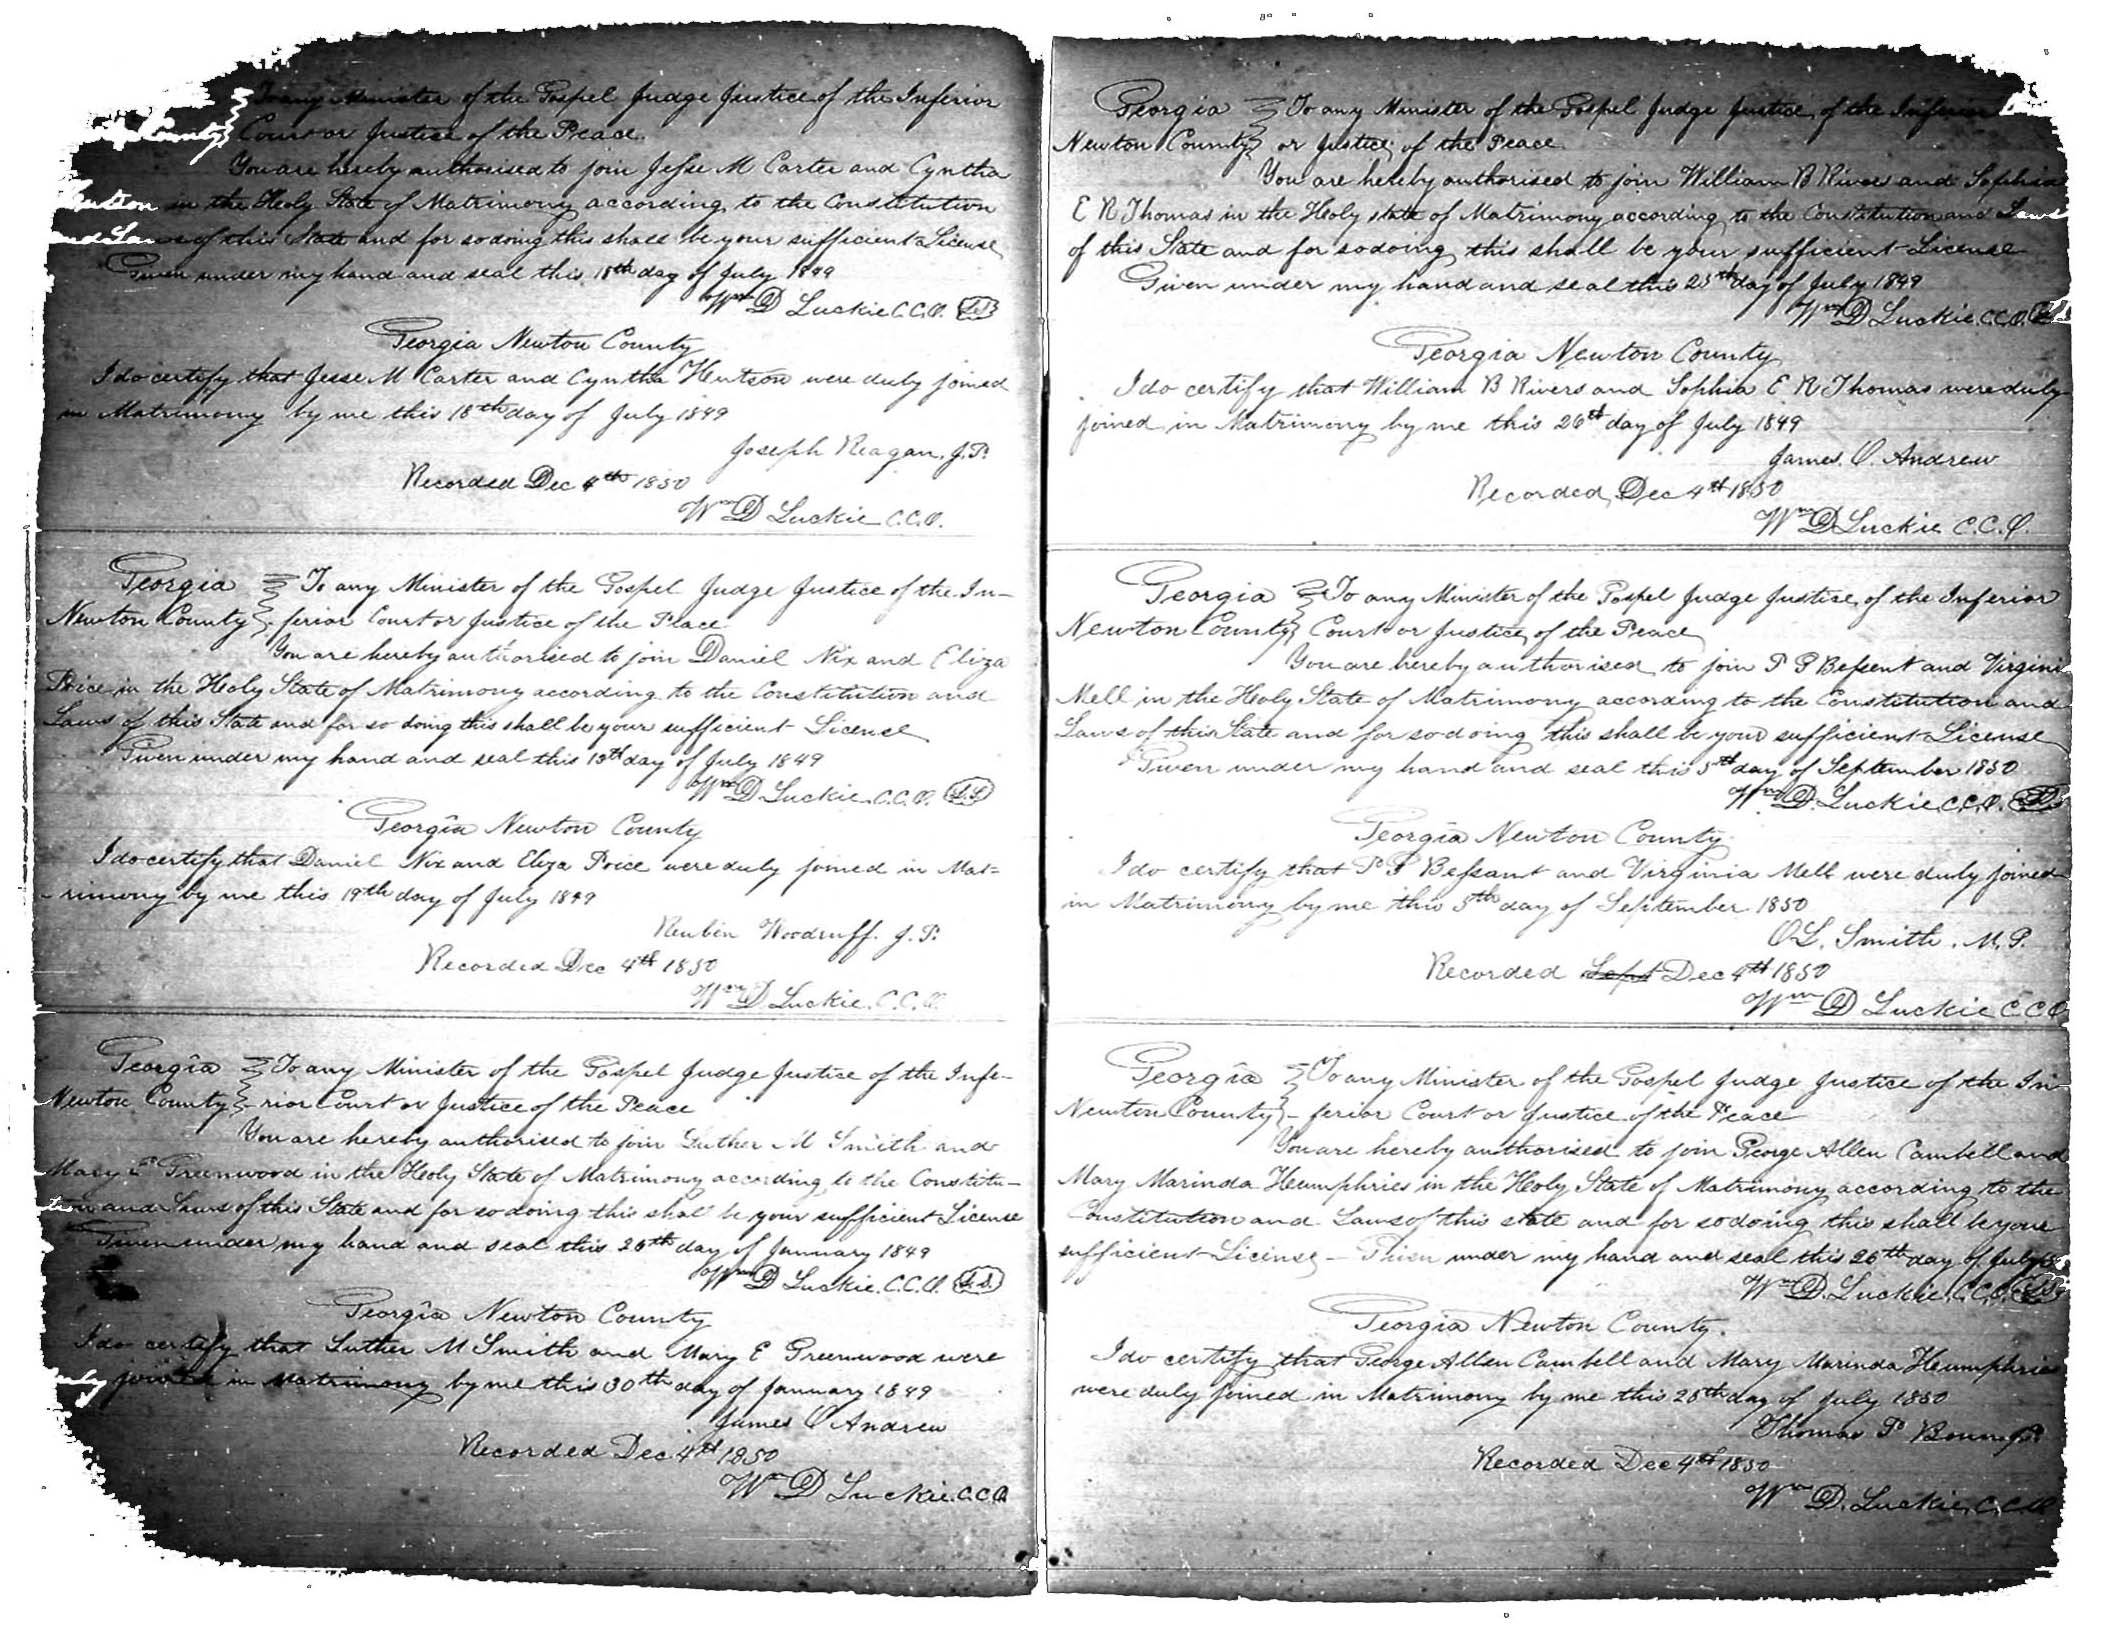 To any Minister of the Gospel Judge Justice of the Inferior
County Court or Justice of the Peace
You are hereby authorised to join Jesse M Carter and Cyntha
Hutson in the Holy State of Matrimony according to the Constitution
and Laws of this State and for so doing this shall be your sufficient License
Given under my hand and seal this 18th day of July 1849
Wm D Luckie C.C.O. L.S.
Georgia Newton County
I do certify that Jesse M Carter and Cyntha Hutson were duly joined
in Matrimony by me this 18th day of July 1849
Joseph Reagan, J.P.
Recorded Dec 4th 1850
Wm D Luckie C.C.O.
Georgia To any Minister of the Gospel Judge Justice of the In-
Newton County ferior Court or Justice of the Peace
You are hereby authorised to join Daniel Nix and Eliza
Price in the Holy State of Matrimony according to the Constitution and
Laws of this State and for so doing this shall be your sufficient License
Given under my hand and seal this 13th day of July 1849
Wm D Luckie C.C.O. L.S.
Georgia Newton County
I do certify that Daniel Nix and Eliza Price were duly joined in Mat=
-rimony by me this 19th day of July 1849
Reubin Woodruff. J.P.
Recorded Dec 4th 1850
Wm D Luckie. C.C.O.
Georgia To any Minister of the Gospel Judge Justice of the Infe-
Newton County rior Court or Justice of the Peace
You are hereby authorised to join Luther M Smith and
Mary E Greenwood in the Holy State of Matrimony according to the Constitu-
tion and Laws of this State and for so doing this shall be your sufficient License
Given under my hand and seal this 26th day of January 1849
Wm D Luckie. C.C.O. L.S.
Georgia Newton County
I do certify that Luther M Smith and Mary E Greenwood were
duly joined in Matrimony by me this 30th day of January 1849
James O Andrew
Recorded Dec 4th 1850
Wm D Luckie. C.C.O.
Georgia To any Minister of the Gospel Judge Justice of the Inferior
Newton County or Justice of the Peace
You are hereby authorised to join William B Rivers and Sophia
E R Thomas in the Holy state of Matrimony according to the Constitution and Laws
of this State and for so doing this shall be your sufficient License
Given under my hand and seal this 25th day of July 1849
Wm D Luckie. C.C.O.
Georgia Newton County
I do certify that William B Rivers and Sophia E R Thomas were duly
joined in Matrimony by me this 26th day of July 1849
James. O. Andrew
Recorded Dec 4th 1850
Wm D Luckie C.C.O.
Georgia To any Minister of the Gospel Judge Justice of the Inferior
Newton County Court or Justice of the Peace
You are hereby authorised to join P P Bessent and Virgini
Mell in the Holy State of Matrimony according to the Constitution and
Laws of this State and for so doing this shall be your sufficient License
Given under my hand and seal this 5th day of September 1850
Wm D. Luckie C.C.O.
Georgia Newton County
I do certify that P P Bessant and Virginia Mell were duly joined
in Matrimony by me this 5th day of September 1850
O L. Smith. M.P.
Recorded Sept Dec 4th 1850
Wm D Luckie C.C.O
Georgia To any Minister of the Gospel Judge Justice of the In-
Newton County - ferior Court or Justice of the Peace
You are hereby authorised to join George Allen Cambell and
Mary Marinda Heumphries in the Holy State of Matrimony according to the
Constitution and Laws of this state and for so doing this shall be your
sufficient License - Given under my hand and seal this 26th day of July
Wm D. Luckie. C.C.O.
Georgia Newton County.
I do certify that George Allen Cambell and Mary Marinda Heumphrie
were duly joined in Matrimony by me this 28th day of July 1850
Thomas P
Recorded Dec 4th 1850
Wm D. Luckie, C.C.O.